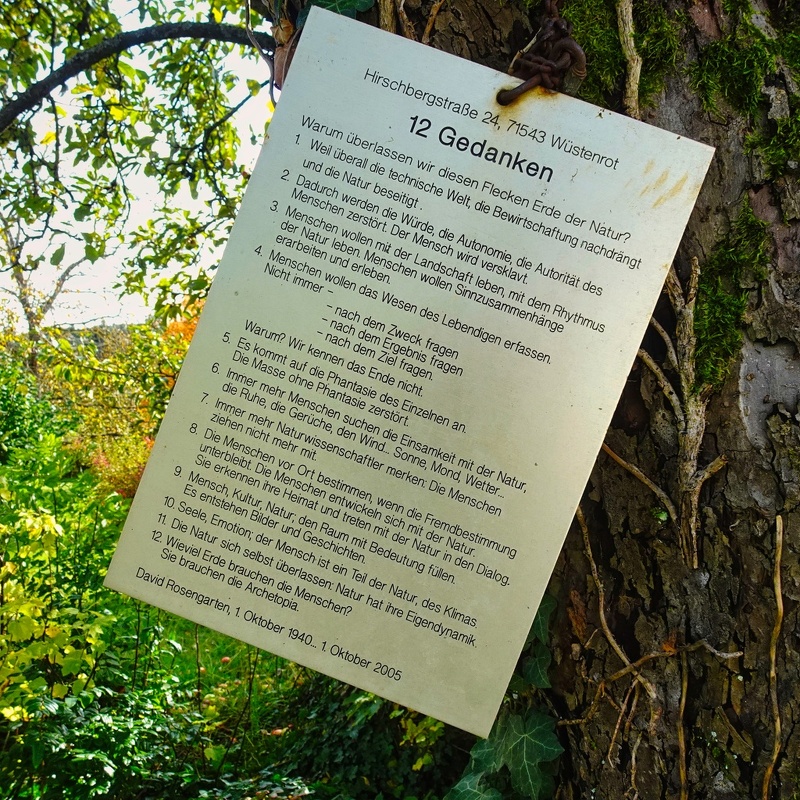 Hirschbergstraße 24, 71543 Wüstenrot
12 Gedanken
Warum überlassen wir diesen Flecken Erde der Natur?
1. Weil überall die technische Welt, die Bewirtschaftung nachdrängt
und die Natur beseitigt.
2. Dadurch werden die Würde, die Autonomie, die Autorität des
Menschen zerstört. Der Mensch wird versklavt.
3. Menschen wollen mit der Landschaft leben, mit dem Rhythmus
der Natur leben. Menschen wollen Sinnzusammenhänge
erarbeiten und erleben.
4. Menschen wollen das Wesen des Lebendigen erfassen.
Nicht immer –
– nach dem Zweck fragen
– nach dem Ergebnis fragen
– nach dem Ziel fragen.
Warum? Wir kennen das Ende nicht.
5. Es kommt auf die Phantasie des Einzelnen an.
Die Masse ohne Phantasie zerstört.
6. Immer mehr Menschen suchen die Einsamkeit mit der Natur,
die Ruhe, die Gerüche, den Wind... Sonne, Mond, Wetter...
7. Immer mehr Naturwissenschaftler merken: Die Menschen
ziehen nicht mehr mit.
8. Die Menschen vor Ort bestimmen, wenn die Fremdbestimmung
unterbleibt. Die Menschen entwickeln sich mit der Natur.
Sie erkennen ihre Heimat und treten mit der Natur in den Dialog.
9. Mensch, Kultur, Natur; den Raum mit Bedeutung füllen.
Es entstehen Bilder und Geschichten.
10. Seele, Emotion; der Mensch ist ein Teil der Natur, des Klimas.
11. Die Natur sich selbst überlassen: Natur hat ihre Eigendynamik.
12. Wieviel Erde brauchen die Menschen?
Sie brauchen die Archetopia.
David Rosengarten, 1. Oktober 1940... 1. Oktober 2005